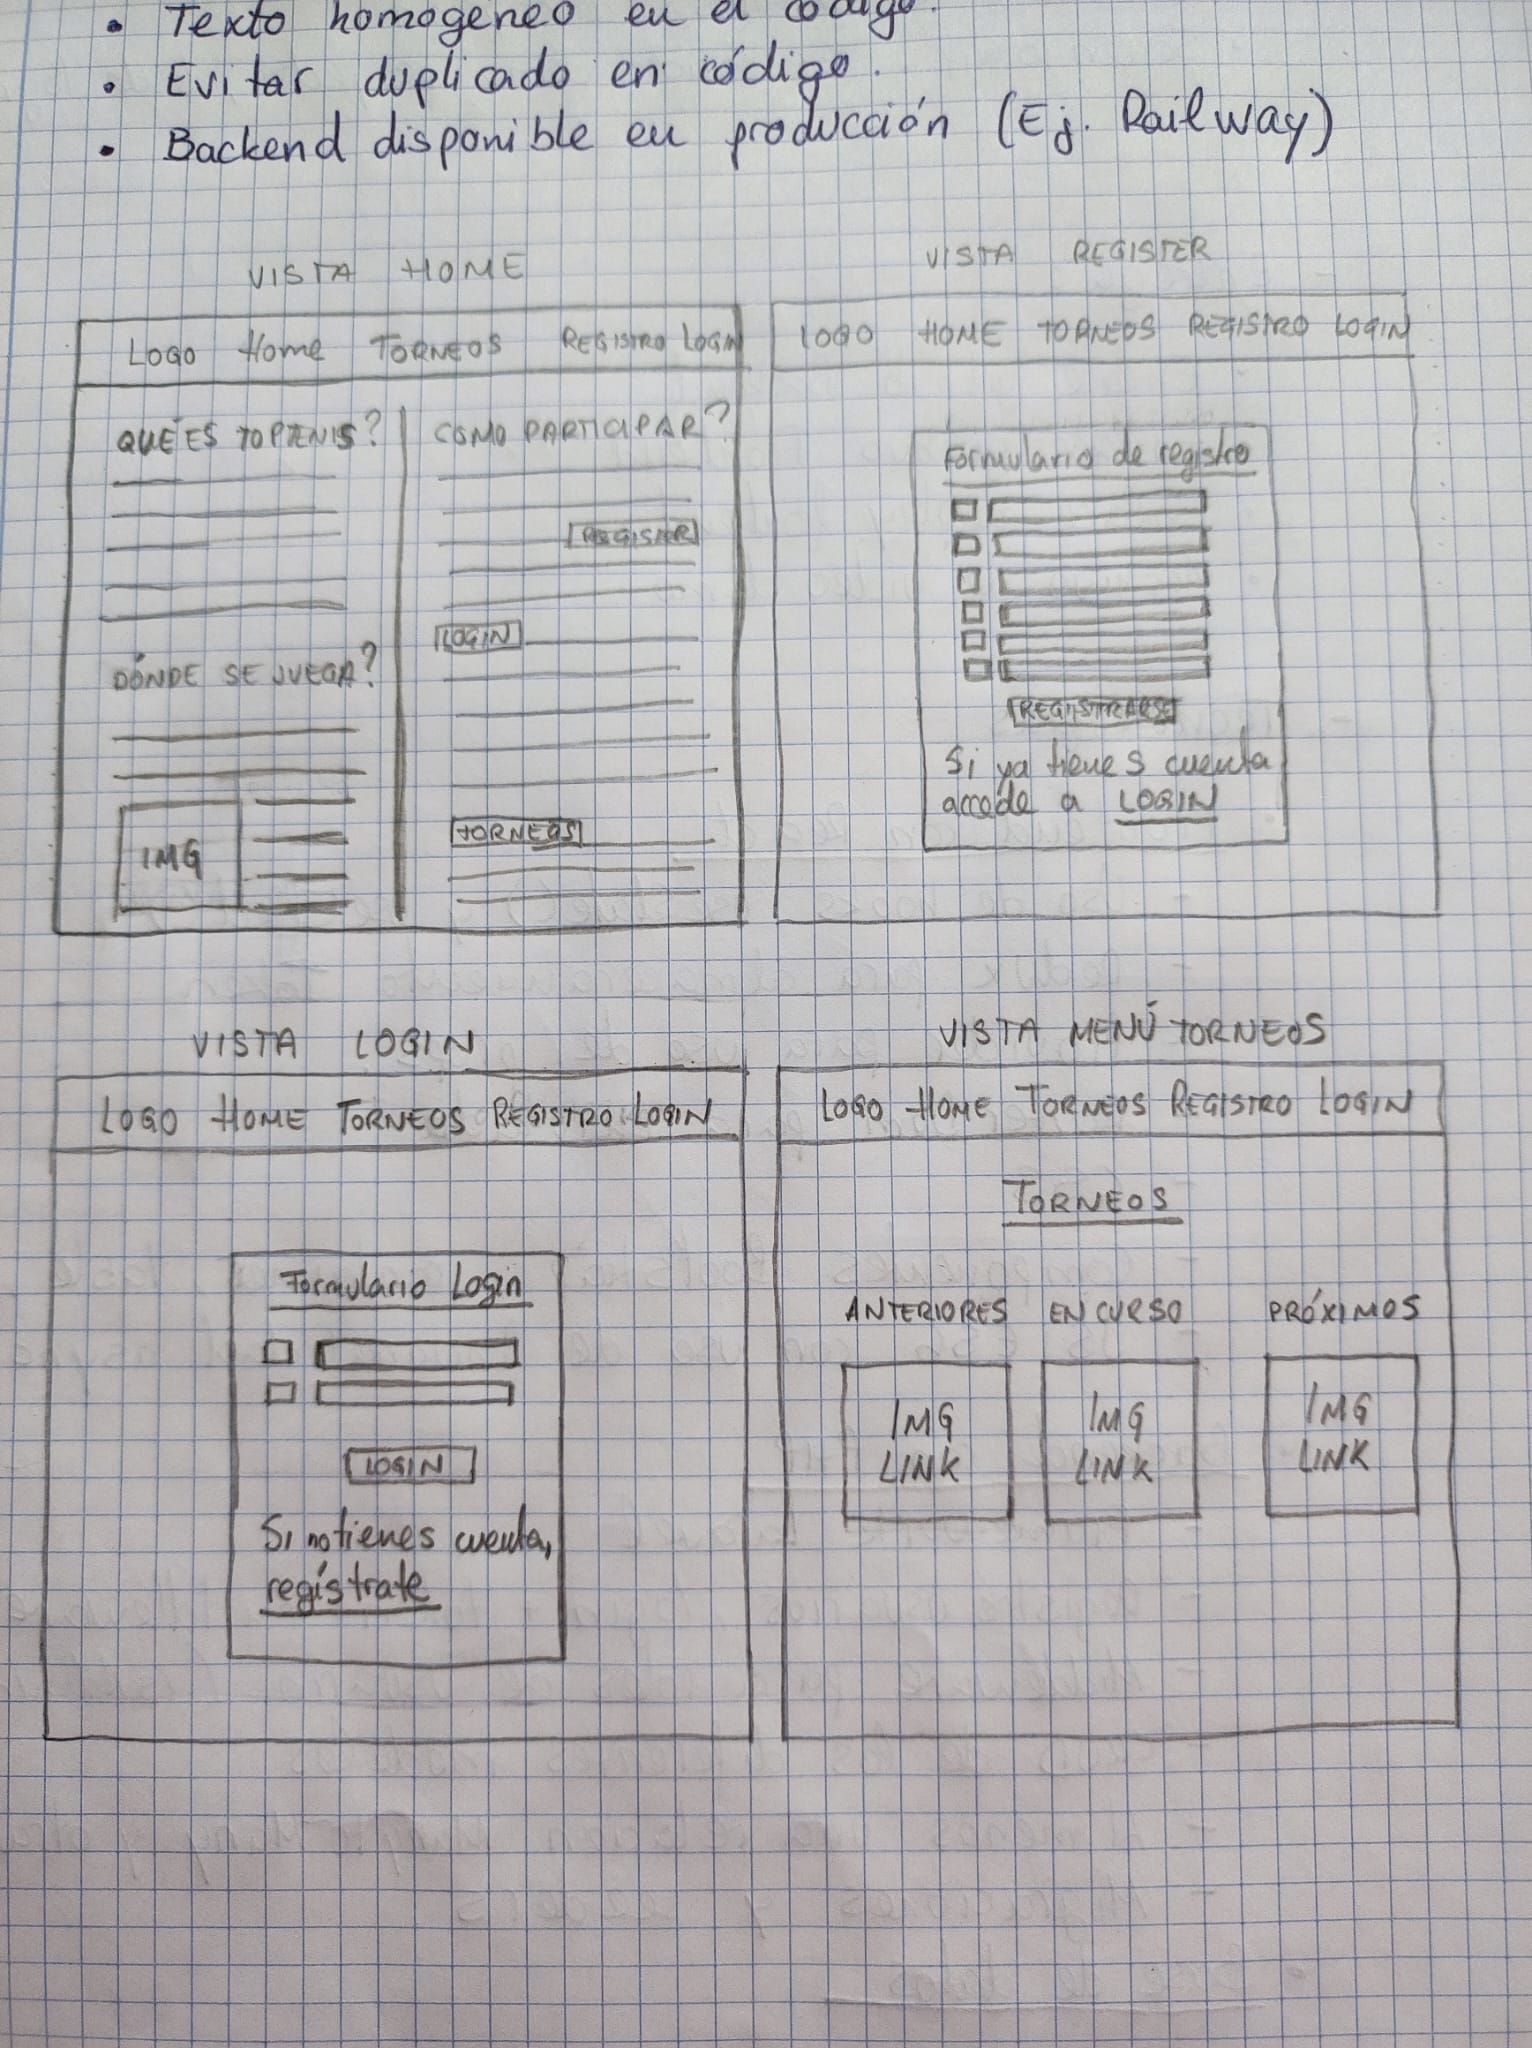 • Texto homogéneo en el código.
• Evitar duplicado en código.
• Backend disponible en producción (Ej. Railway)
VISTA HOME
LOGO Home TORNEOS REGISTRO LOGIN
QUÉ ES TOPTENIS?
DÓNDE SE JUEGA?
IMG
COMO PARTICIPAR?
REGISTER
LOGIN
TORNEOS
VISTA REGISTER
LOGO HOME TORNEOS REGISTRO LOGIN
Formulario de registro
REGISTRARSE
Si ya tienes cuenta
accede a LOGIN
VISTA LOGIN
LOGO HOME TORNEOS REGISTRO LOGIN
Formulario Login
LOGIN
Si no tienes cuenta,
regístrate
VISTA MENÚ TORNEOS
LOGO HOME TORNEOS REGISTRO LOGIN
TORNEOS
ANTERIORES EN CURSO PRÓXIMOS
IMG LINK
IMG LINK
IMG LINK